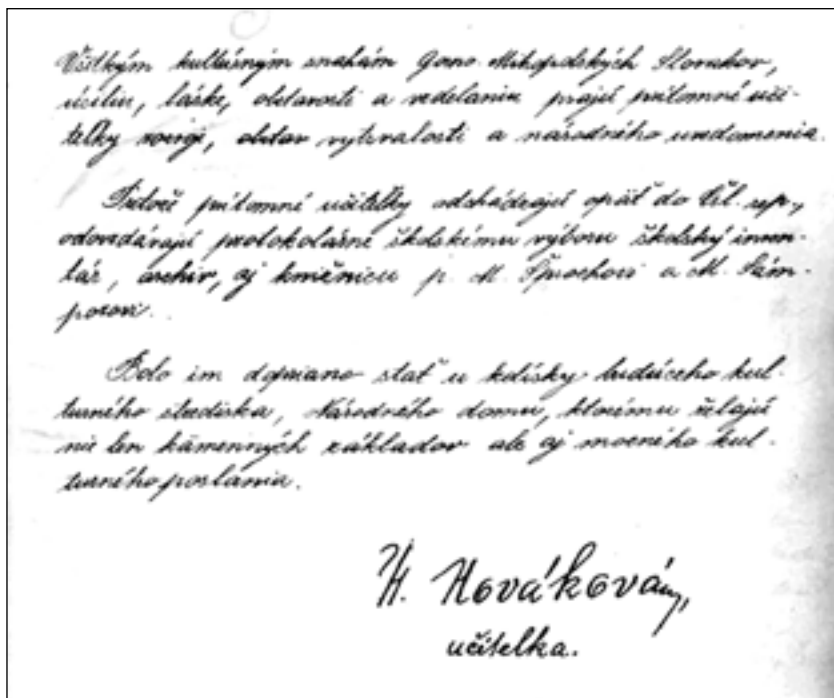 Všetkým kultúrnym snahám Gorno Mitropolských Slovákov,
úsiliu, láske, obetavosti a vzdelaniu prajú prítomné uči-
teľky verejne, obetav vytrvalosti a národného uvedomenia.
Jutoré prítomné učiteľky odchádzajú opäť do Čsl. rep.,
odovzdávajú protokolárne školskému výboru školský inven-
tár, archív, aj knižnicu p. M. a M.
Bolo im dopriano stáť u kolísky budúceho kul-
turného strediska, Národného domu, ktorému želajú
nie len kamenných základov ale aj mocného kul-
turného poslania.
H. Nováková,
učitelka.